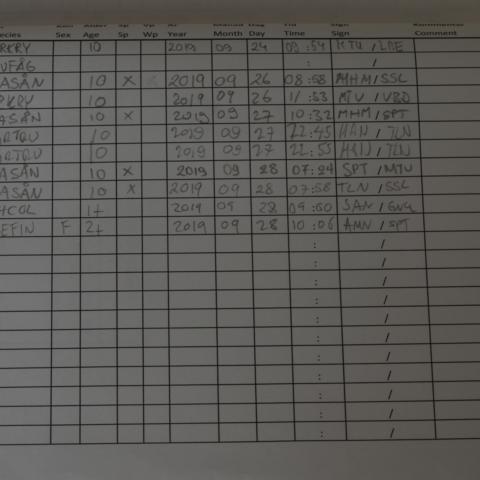 Species Sex Age Sp Wp Year Month Day Time Sign Comment
RKRY 10 2019 09 24 09:54 MTU / LDE
UFÅG : /
ASÅN 10 X 2019 09 26 08:58 MHM / SSL
RKRY 10 2019 09 26 11:53 MTU / VBD
ASÅN 10 X 2019 09 27 10:32 MHM / SPT
RTRU 10 2019 09 27 22:45 HAN / TLN
RTRU 10 2019 09 27 22:55 HAN / TLN
ASÅN 10 X 2019 09 28 07:24 SPT / MTU
ASÅN 10 X 2019 09 28 07:58 TLN / SSL
HCOL 1+ 2019 09 28 09:00 SAN /
EFIN F 2+ 2019 09 28 10:06 AMN / SPT
: /
: /
: /
: /
: /
: /
: /
: /
: /
: /
: /